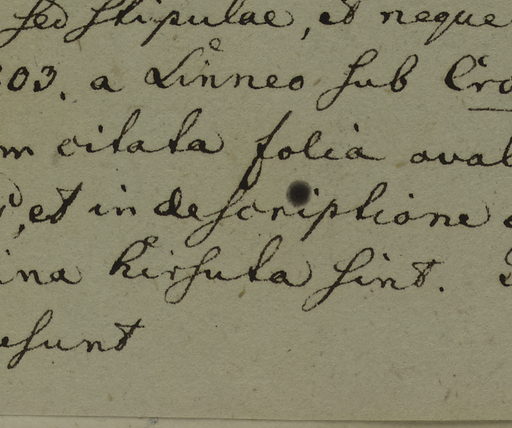 sed stipulae, et neque
303. a Linneo sub Cro
m citata folia oval
, et in descriptione
ina hirsuta sint.
esunt